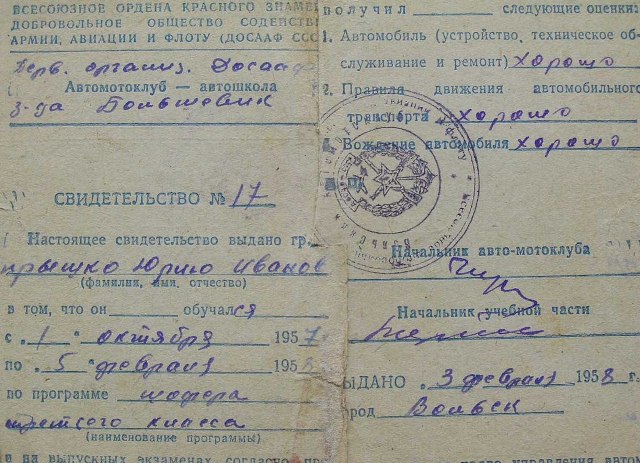 ВСЕСОЮЗНОЕ ОРДЕНА КРАСНОГО ЗНАМЕ
ДОБРОВОЛЬНОЕ ОБЩЕСТВО СОДЕЙСТВ
АРМИИ, АВИАЦИИ И ФЛОТУ (ДОСААФ ССС
Перв. организ. Досааф
Автомотоклуб — автошкола
з-да Большевик
СВИДЕТЕЛЬСТВО № 17
Настоящее свидетельство выдано гр.
Юрию Иванов
(фамилия, имя, отчество)
в том, что он обучался
с „1" октября 1957
по „5" февраля 1958
по программе шофера
третьего класса
(наименование программы)
и на выпускных экзаменах согласно
получил следующие оценки:
1. Автомобиль (устройство, техническое об-
служивание и ремонт) хорошо
2. Правила движения автомобильного
транспорта хорошо
Вождение автомобиля хорошо
Начальник авто-мотоклуба
Начальник учебной части
ЫДАНО „3 февраля 1958 г.
ород Вольск
право управления автом